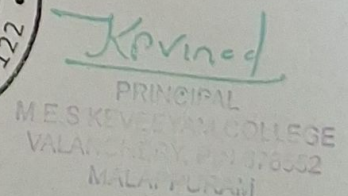 122
K P Vinod
PRINCIPAL
M.E.S KEVEEYAM COLLEGE
VALANCHERY, PIN 676552
MALAPPURAM